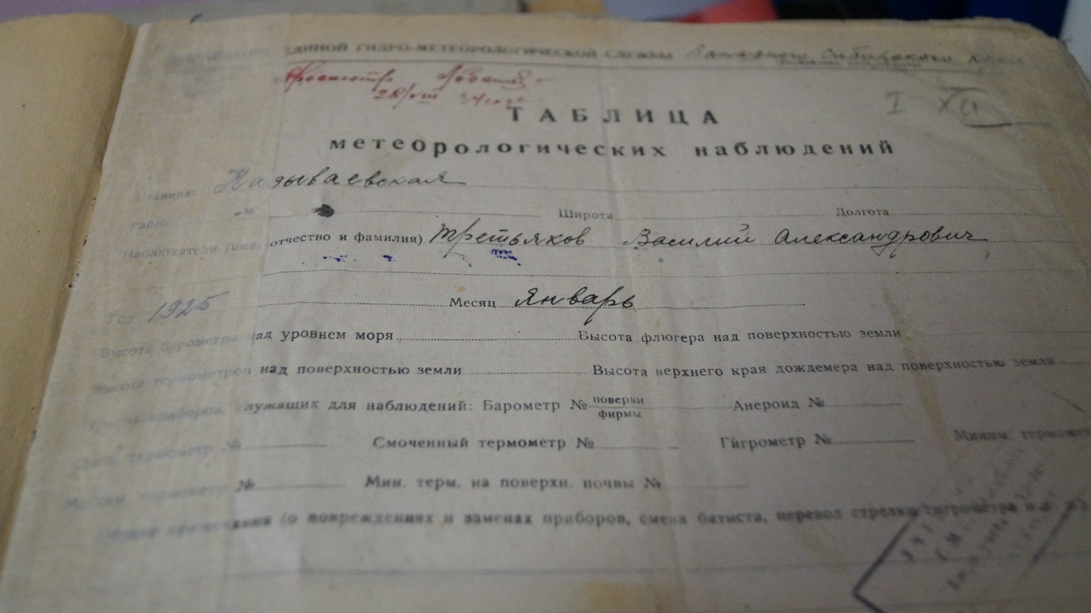 ЕДИНОЙ ГИДРО-МЕТЕОРОЛОГИЧЕСКОЙ СЛУЖБЫ Западного Сибирского Края
ТАБЛИЦА
I XII
метеорологических наблюдений
Станция: Называевская
Район
Широта Долгота
Наблюдатели (имя, отчество и фамилия) Третьяков Василий Александрович
Год 1925 Месяц Январь
Высота барометра над уровнем моря Высота флюгера над поверхностью земли
Высота термометров над поверхностью земли Высота верхнего края дождемера над поверхностью земли
приборов, служащих для наблюдений: Барометр № поверки фирмы Анероид №
термометр № Смоченный термометр № Гигрометр № Миним. термомет
термометр № Мин. терм. на поверхн. почвы №
Общие примечания (о повреждениях и заменах приборов, смена батиста, перевод стрелки гигрометра и